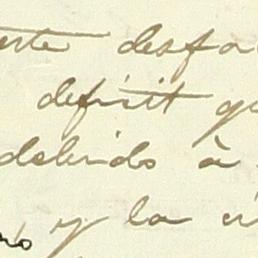 este desfa
deficit qu
debido à
y la